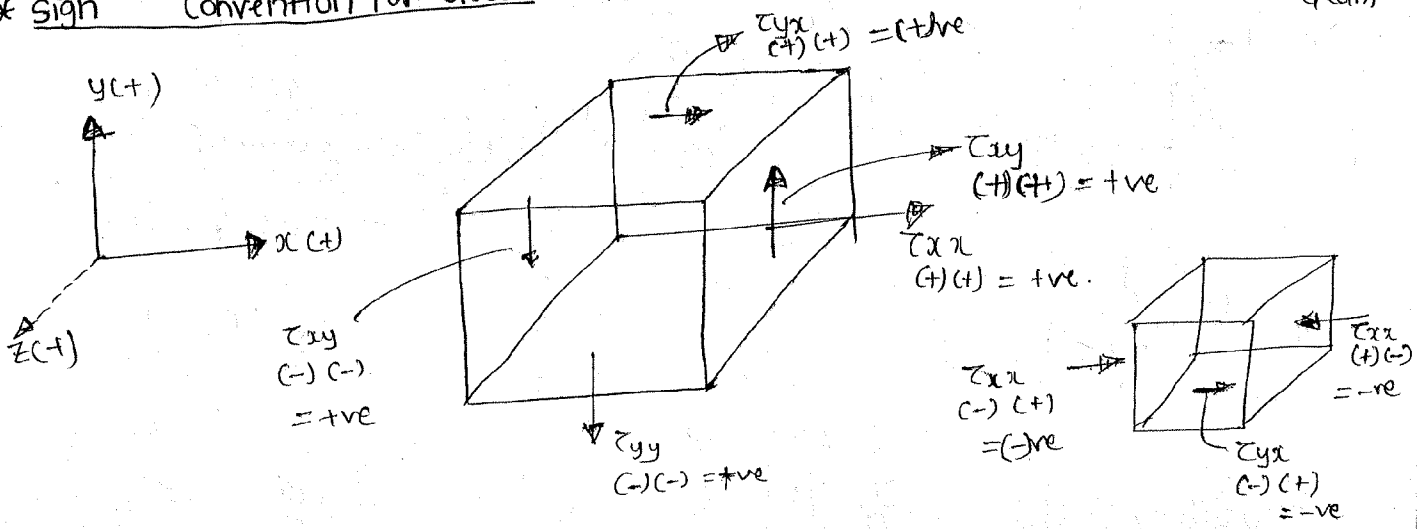 * Sign Convention for
τyx
(+) (+) = (+)ve
y(+)
x (+)
z(+)
τxy
(+) (+) = +ve
τxx
(+) (+) = +ve.
τxy
(-) (-)
= +ve
τyy
(-) (-) = +ve
τxx
(-) (+)
= (-)ve
τxx
(+) (-)
= -ve
τyx
(-) (+)
= -ve